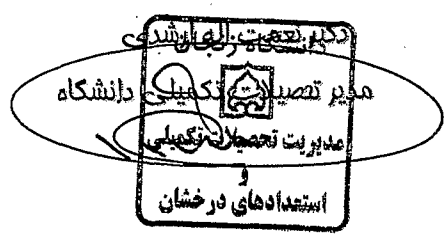 دکتر نعمت اله ارشدی
دانشگاه زنجان
مدیر تحصیلات تکمیلی دانشگاه
مدیریت تحصیلات تکمیلی
و
استعدادهای درخشان